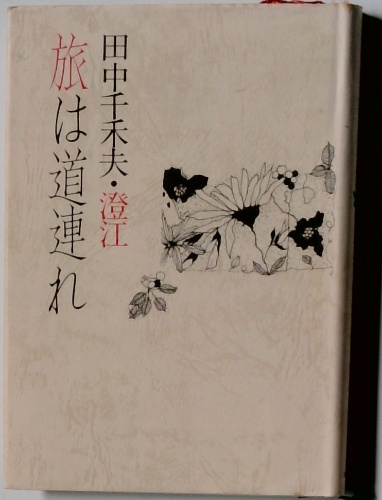 田中千禾夫・澄江
旅は道連れ